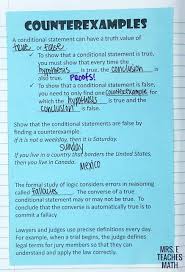 COUNTEREXAMPLES
A conditional statement can have a truth value of
true or false
✓ To show that a conditional statement is true,
you must show that every time the
hypothesis is true, the conclusion
also true. PROOFS!
✓ To show that a conditional statement is false,
you need to only find one counterexample for
which the hypothesis is true and the
conclusion is false.
Show that the conditional statements are false by
finding a counterexample.
If it is not a weekday, then it is a Saturday.
Sunday
If you live in a country that borders the United States,
then you live in Canada.
Mexico
The formal study of logic considers errors in reasoning
called fallacies. The converse of a true
conditional statement may or may not be true. To
conclude that the converse is automatically true is
to commit a fallacy.
Lawyers and judges use precise definitions every day.
For example, when a trial begins, the judge defines
legal terms for jury members so that they can
understand and apply the law correctly.
MRS. E
TEACHES
MATH